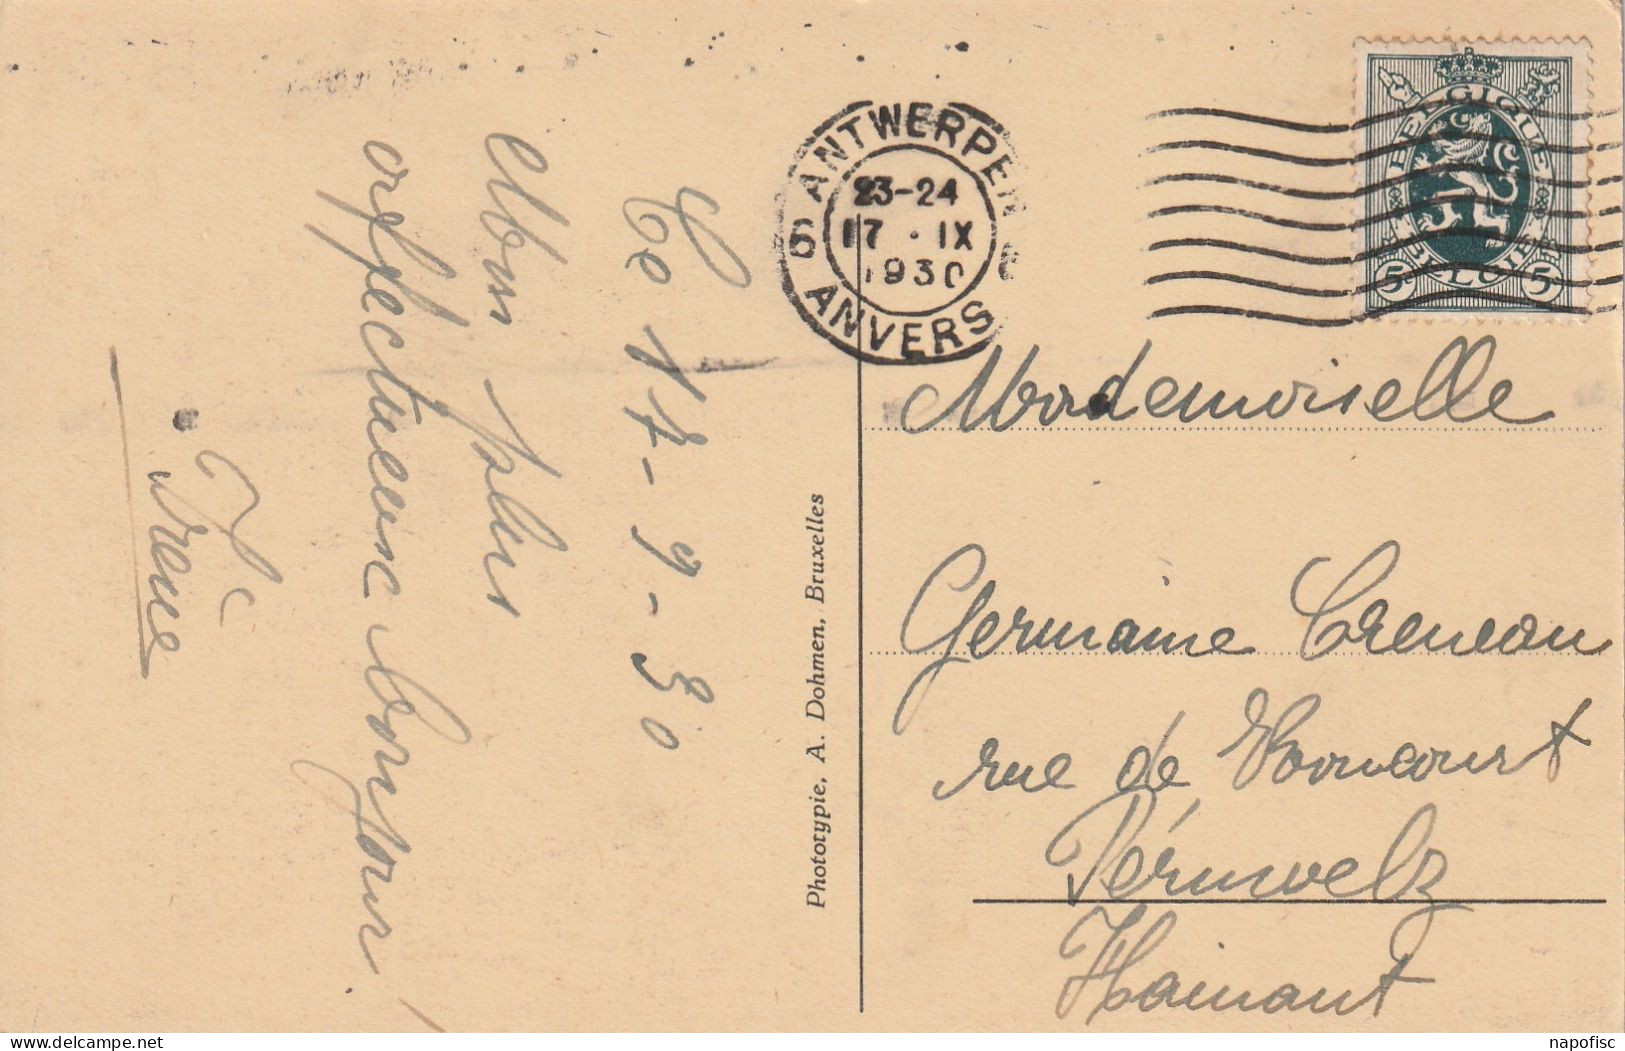 Ce 17-9-30
Mon plus
affectueux bonjour !
Irène
Phototypie, A. Dohmen, Bruxelles
ANTWERPEN
23-24
6 17 · IX 6
1930
ANVERS
BELGIQUE
BELGIË
5 5
Mademoiselle
Germaine
rue de
Péruwelz
Hainaut
delcampe.net
napofisc